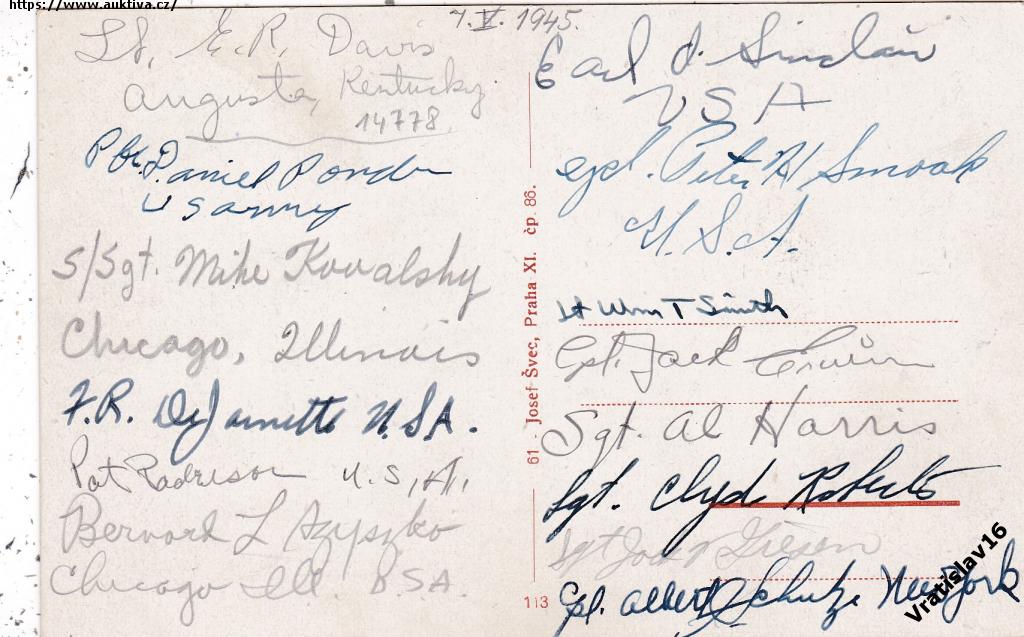 https://www.auktiva.cz/
7.V.1945.
Lt. E.R. Davis
Augusta, Kentucky
14778
Pfc. Daniel Ponder
US army
S/Sgt. Mike Kowalsky
Chicago, Illinois
F.R. DeJarnette U.S.A.
Pat U.S.A.
Bernard L
Chicago Ill. U.S.A.
Earl J. Sinclair
USA
Peter H Smoak
U.S.A.
Lt Wm T Smith
Cpt. Jack Erwin
Sgt. Al Harris
Sgt. Clyde Roberts
Sgt
Cpl. Albert Schulze New York
61 Josef Švec, Praha XI. čp. 86.
113
Vratislav16